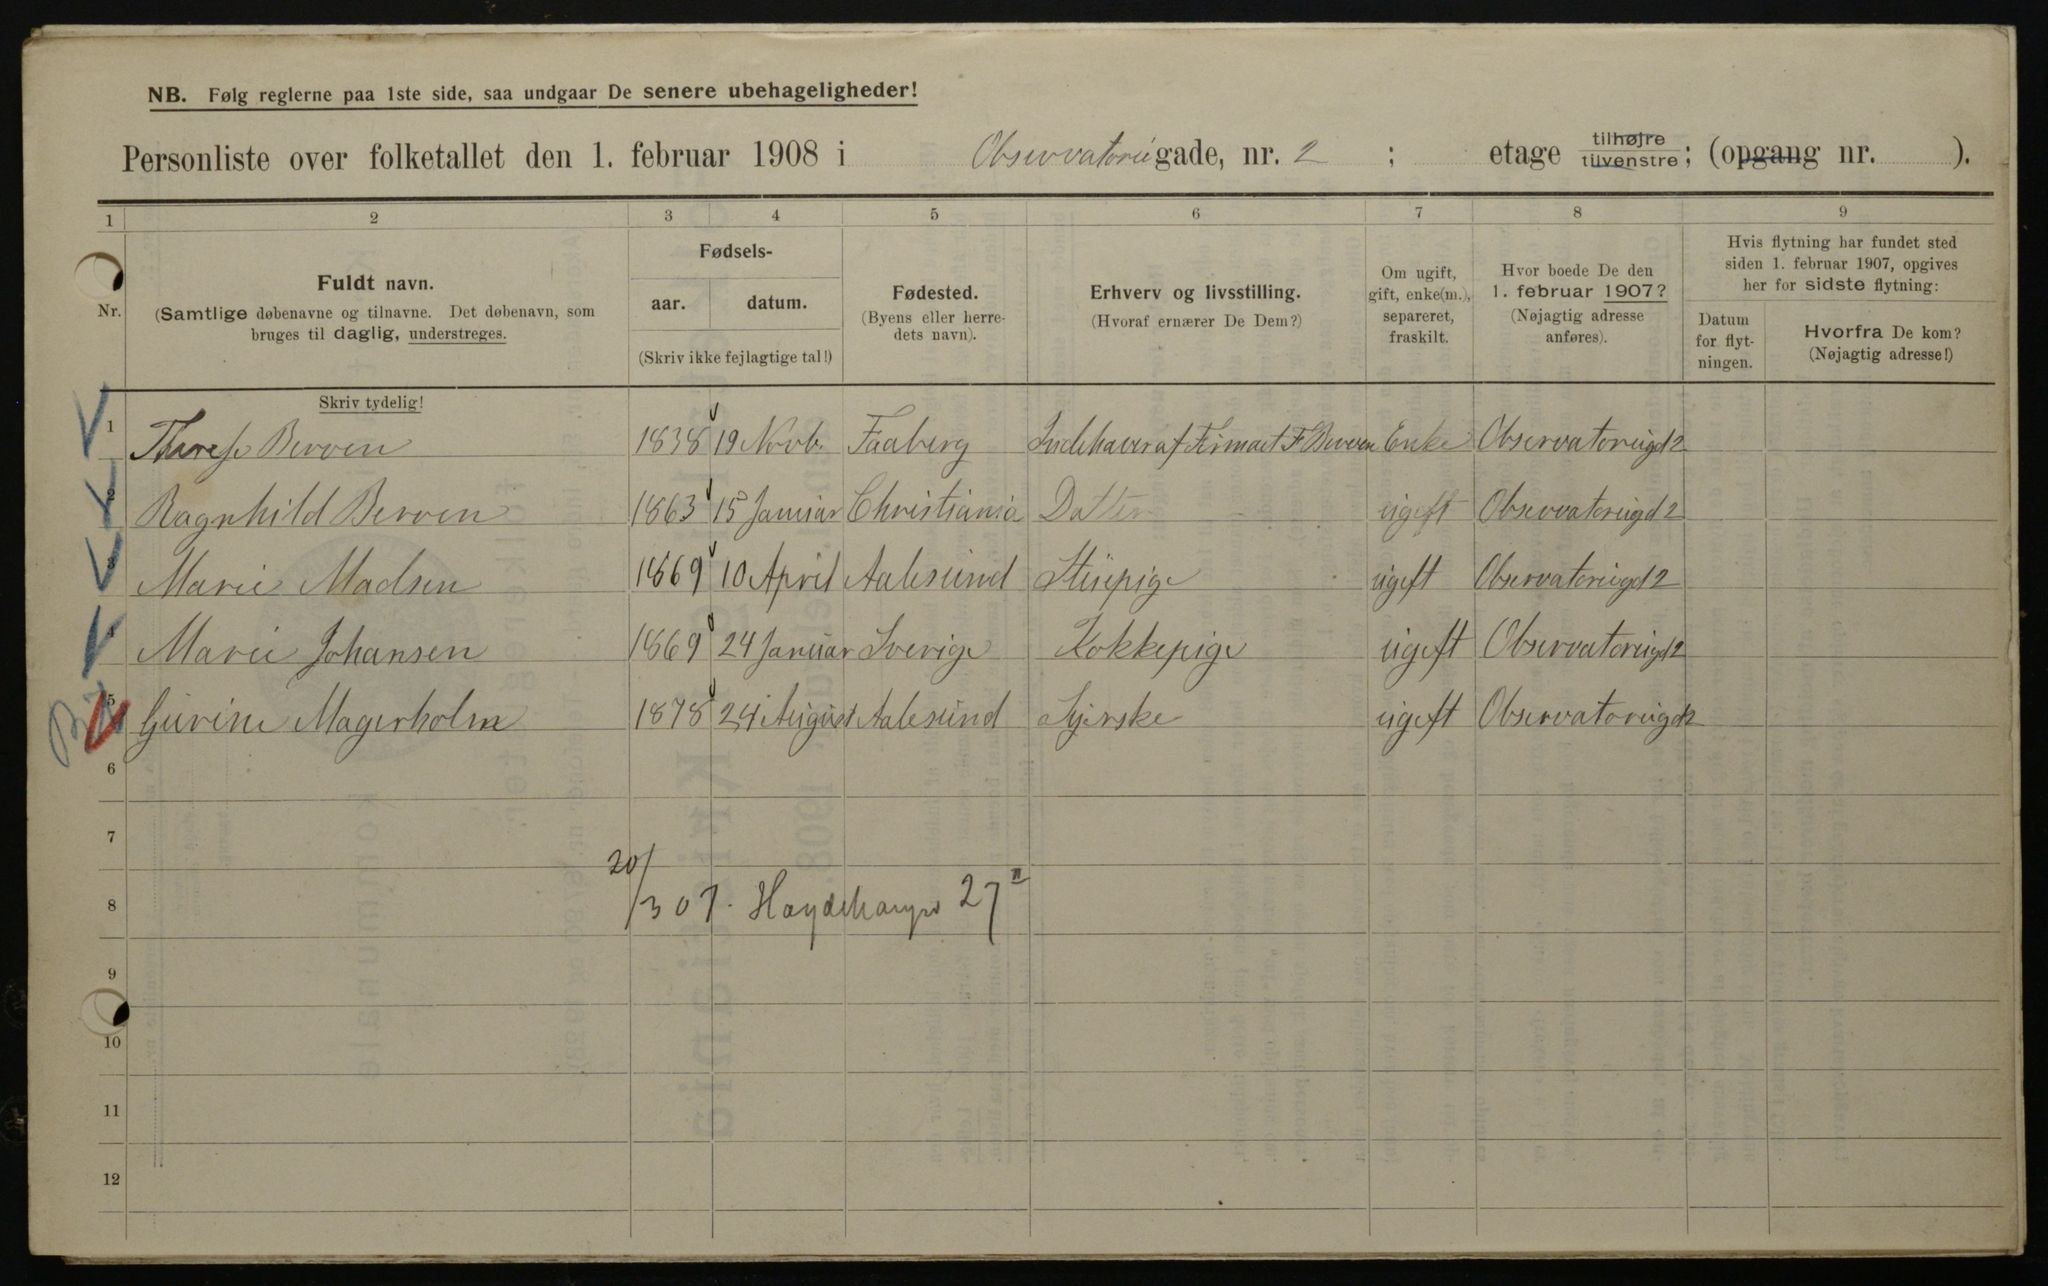 NB. Følg reglerne paa 1ste side, saa undgaar De senere ubehageligheder!
Personliste over folketallet den 1. februar 1908 i Observatoriegade, nr. 2 ; etage tilhøjre tilvenstre; (opgang nr. ).
1 2 3 4 5 6 7 8 9
Nr.
Fuldt navn.
(Samtlige døbenavne og tilnavne. Det døbenavn, som
bruges til daglig, understreges.
Skriv tydelig!
Fødsels-
aar. datum.
(Skriv ikke fejlagtige tal!)
Fødested.
(Byens eller herre-
dets navn).
Erhverv og livsstilling.
(Hvoraf ernærer De Dem?)
Om ugift,
gift, enke(m.),
separeret,
fraskilt.
Hvor boede De den
1. februar 1907?
(Nøjagtig adresse
anføres).
Hvis flytning har fundet sted
siden 1. februar 1907, opgives
her for sidste flytning:
Datum
for flyt-
ningen.
Hvorfra De kom?
(Nøjagtig adresse!)
1 Therese Berven 1838 19 Novb. Faaberg Indehaver af Firmaet F Berven Enke Observatoriegd 2
2 Ragnhild Berven 1863 15 Januar Christiania Datter ugift Observatoriegd 2
3 Marie Madsen 1869 10 April Aalesund Stuepige ugift Observatoriegd 2
4 Marie Johansen 1869 24 Januar Sverige Kokkepige ugift Observatoriegd 2
5 Gurine Magerholm 1878 24 August Aalesund Syerske ugift Observatoriegd 2
6
7
20/
8 /3 07. 27 II
9
10
11
12